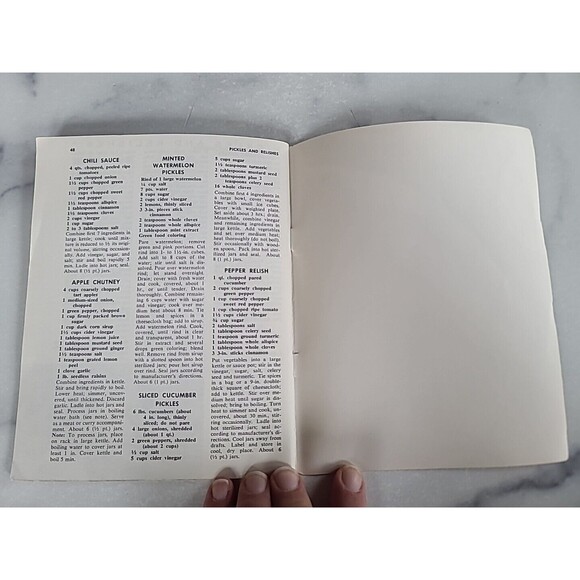 48
PICKLES AND RELISHES
CHILI SAUCE
4 qts. chopped, peeled ripe
tomatoes
1 cup chopped onion
1½ cups chopped green
pepper
1½ cups chopped sweet
red pepper
1½ teaspoons allspice
1 tablespoon cinnamon
1½ teaspoons cloves
2 cups vinegar
1 cup sugar
2 to 3 tablespoons salt
Combine first 7 ingredients in
large kettle; cook until mix-
ture is reduced to ½ its origi-
nal volume, stirring
occasionally. Add vinegar, sugar, and
salt; stir and boil rapidly 5
min. Ladle into hot jars; seal.
About 8 (½ pt.) jars.
APPLE CHUTNEY
4 cups coarsely chopped
tart appler
1 medium-sized onion,
chopped
1 green pepper, chopped
1 cup firmly packed brown
sugar
1 cup dark corn sirup
1½ cups cider vinegar
1 tablespoon lemon juice
1 tablespoon mustard seed
1 tablespoon ground ginger
1½ teaspoons salt
1 teaspoon grated lemon
peel
1 clove garlic
1 lb. seedless raisins
Combine ingredients in kettle.
Stir and bring rapidly to boil.
Lower heat; simmer, uncov-
ered, until thickened. Discard
garlic. Ladle into hot jars and
seal. Process jars in boiling
water bath (see note). Serve
as a meat or curry accompani-
ment. About 6 (½ pt.) jars.
Note: To process jars, place
on rack in large kettle. Add
boiling water to cover jars at
least 1 in. Cover kettle and
boil 5 min.
MINTED
WATERMELON
PICKLES
Rind of 1 large watermelon
¼ cup salt
7 pts. water
8 cups sugar
2 cups cider vinegar
2 lemons, thinly sliced
3 3-in. pieces stick
cinnamon
2 teaspoons whole cloves
2 teaspoons whole allspice
1 tablespoon mint extract
Green food coloring
Pare watermelon; remove
green and pink portions. Cut
rind into 1- to 1½-in. cubes.
Add salt to 8 cups of the
water; stir until salt is dis-
solved. Pour over watermelon
rind; let stand overnight.
Drain; cover with fresh water
and cook, covered, about 1
hr., or until tender. Drain
thoroughly. Combine remaining
6 cups water with sugar and
vinegar; cook over medium
heat about 8 min. Tie lemon
and spices in a
cheesecloth bag; add to sirup.
Add watermelon rind. Cook,
covered, until rind is clear
and transparent, about 1 hr.
Stir in extract and several
drops green coloring; blend
well. Remove rind from sirup
with a slotted spoon and pack
into hot jars; pour hot sirup
over rind. Seal jars according
to manufacturer's directions.
About 6 (1 pt.) jars.
SLICED CUCUMBER
PICKLES
6 lbs. cucumbers (about
4 in. long), thinly
sliced; do not pare
4 large onions, shredded
(about 1 qt.)
2 green peppers, shredded
(about 2 cups)
½ cup salt
5 cups cider vinegar
5 cups sugar
1½ teaspoons turmeric
2 tablespoons mustard seed
2 tablespoons plus 2
teaspoons celery seed
16 whole cloves
Combine first 4 ingredients in
a large bowl, cover vegeta-
bles with small ice cubes.
Cover with weighted plate.
Set aside about 3 hrs.; drain.
Meanwhile, combine vinegar
and remaining ingredients in
large kettle. Add vegetables
and set over medium heat;
heat thoroughly (do not boil).
Stir occasionally with wood-
en spoon. Pack into hot steri-
lized jars and seal. About
8 (1 pt.) jars.
PEPPER RELISH
1 qt. chopped pared
cucumber
2 cups coarsely chopped
green pepper
1 cup coarsely chopped
sweet red pepper
1 cup chopped ripe tomato
1½ cups cider vinegar
¾ cup sugar
2 tablespoons salt
2 tablespoons celery seed
1 teaspoon ground turmeric
1 teaspoon whole allspice
1 teaspoon whole cloves
3 3-in. sticks cinnamon
Put vegetables into a large
kettle or sauce pot; stir in the
vinegar, sugar, salt, celery
seed and turmeric. Tie spices
in a bag or a 9-in. double-
thick square of cheesecloth;
add to kettle. Stir over me-
dium heat until sugar is dis-
solved; bring to boiling. Turn
heat to simmer and cook, un-
covered, about 30 min., stir-
ring occasionally. Discard
spices. Ladle into hot
sterilized jars; seal ac-
cording to manufacturer's di-
rections. Cool jars away from
drafts. Label and store in
cool, dry place. About 6
(½ pt.) jars.